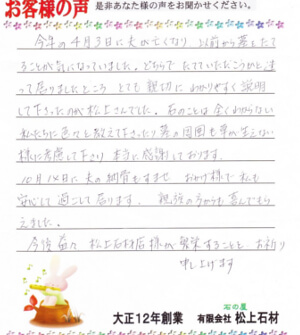 お客様の声 是非あなた様の声をお聞かせください。
今年の4月3日に夫が亡くなり 以前から墓をたて
ることが気になっていました。どちらで たてていただこうかと迷
って居りましたところ とても 親切に わかりやすく 説明
して下さったのが松上さんでした。石のことは全くわからない
私たちに色々と教えて下さったり 墓の周囲も草の生えない
様に考慮して下さり 本当に感謝しております。
10月14日に夫の納骨をすませ お釈り様で 私も
安心して過ごして居ります。 親族の方からも喜んでもら
えました。
今後益々 松上石材店様が繁栄することを お祈り
申し上げます
石の屋
大正12年創業 有限会社 松上石材